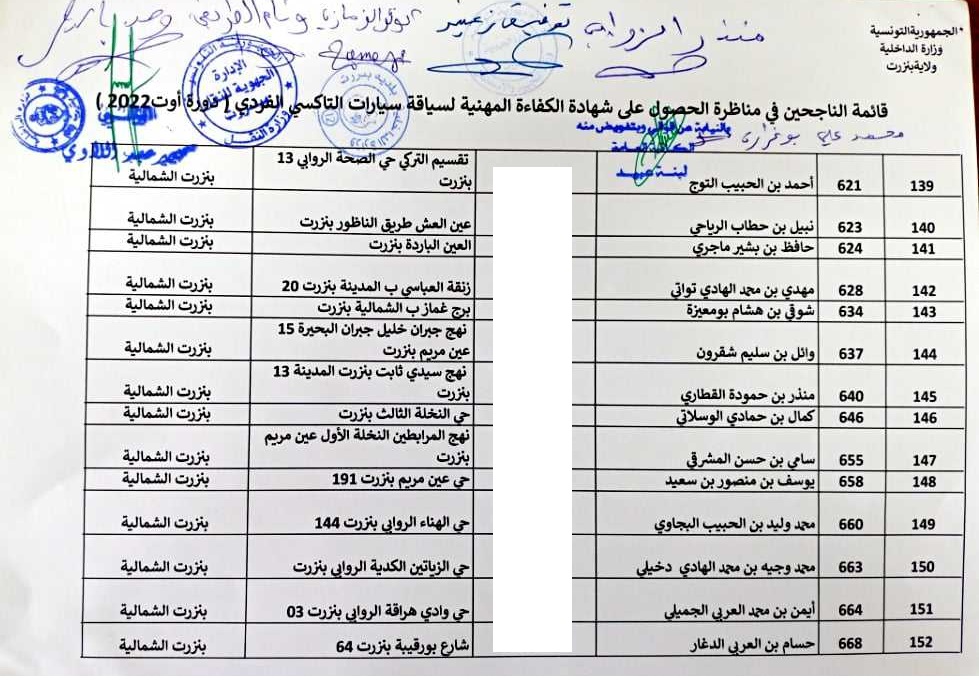 الجمهورية التونسية
وزارة الداخلية
ولاية بنزرت
منذر الزوابي توفيق زعبير
محمد علي بوغزارة
قائمة الناجحين في مناظرة الحصول على شهادة الكفاءة المهنية لسياقة سيارات التاكسي الفردي ( دورة أوت 2022 )
وبالنيابة عن الوالي وبتفويض منه
الكاتبة العامة
لبنة عبيد
الجمهورية التونسية
الإدارة
الجهوية للنقل
بنزرت
وزارة النقل
بلدية بنزرت
139 621 أحمد بن الحبيب التوج تقسيم التركي حي الصحة الروابي 13 بنزرت بنزرت الشمالية
140 623 نبيل بن حطاب الرياحي عين العش طريق الناظور بنزرت بنزرت الشمالية
141 624 حافظ بن بشير ماجري العين الباردة بنزرت بنزرت الشمالية
142 628 مهدي بن محمد الهادي تواتي زنقة العباسي ب المدينة بنزرت 20 بنزرت الشمالية
143 634 شوقي بن هشام بومعيزة برج غماز ب الشمالية بنزرت بنزرت الشمالية
144 637 وائل بن سليم شقرون نهج جبران خليل جبران البحيرة 15 عين مريم بنزرت بنزرت الشمالية
145 640 منذر بن حمودة القطاري نهج سيدي ثابت بنزرت المدينة 13 بنزرت بنزرت الشمالية
146 646 كمال بن حمادي الوسلاتي حي النخلة الثالث بنزرت بنزرت الشمالية
147 655 سامي بن حسن المشرقي نهج المرابطين النخلة الأول عين مريم بنزرت بنزرت الشمالية
148 658 يوسف بن منصور بن سعيد حي عين مريم بنزرت 191 بنزرت الشمالية
149 660 محمد وليد بن الحبيب البجاوي حي الهناء الروابي بنزرت 144 بنزرت الشمالية
150 663 محمد وجيه بن محمد الهادي دخيلي حي الزياتين الكدية الروابي بنزرت بنزرت الشمالية
151 664 أيمن بن محمد العربي الجميلي حي وادي هراقة الروابي بنزرت 03 بنزرت الشمالية
152 668 حسام بن العربي الدغار شارع بورقيبة بنزرت 64 بنزرت الشمالية